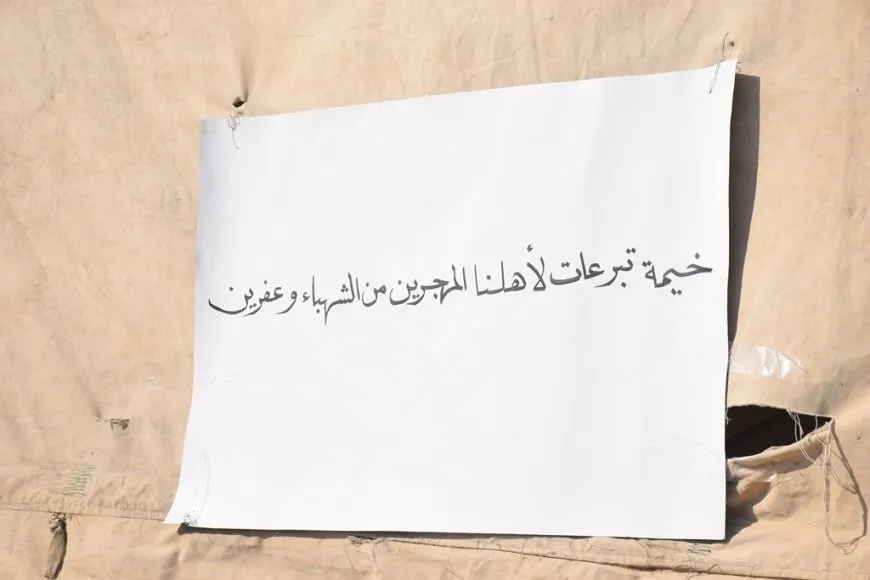 خيمة تبرعات لأهلنا المهجرين من الشهباء وعفرين